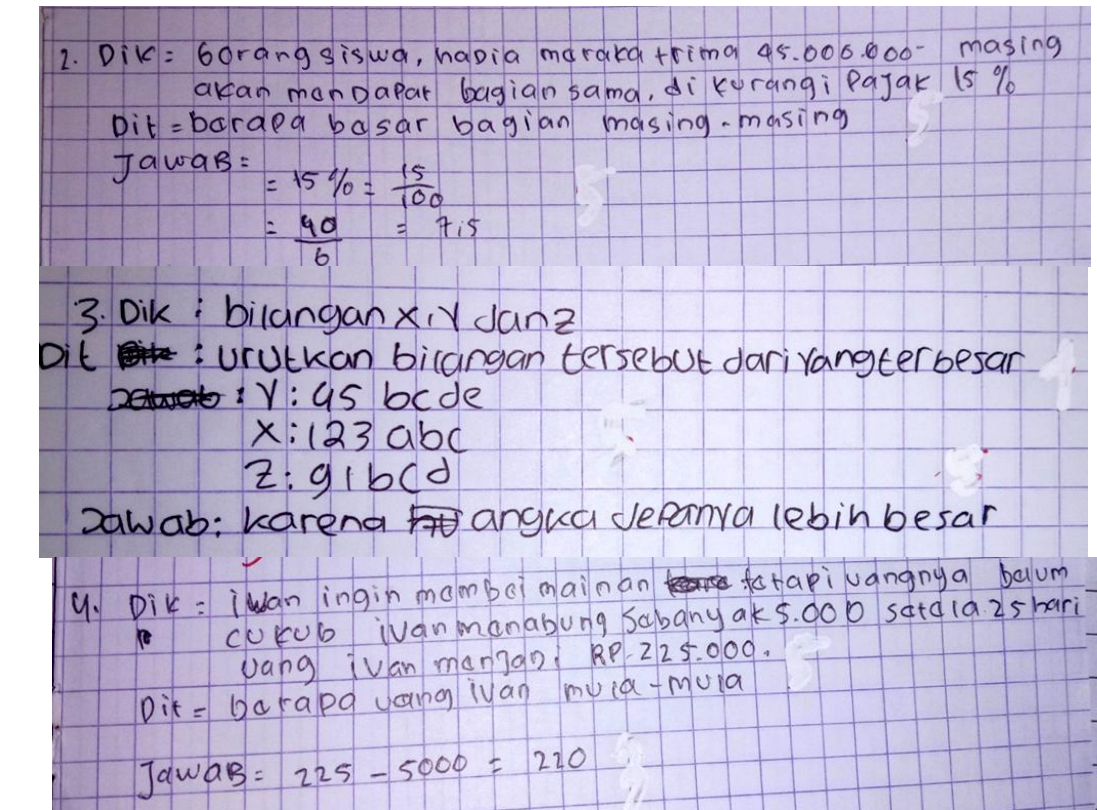 2. Dik = 6 orang siswa, hadia maraka trima 45.000.000- masing
akan mandapat bagian sama, di kurangi pajak 15 %
Dit = barapa basar bagian masing-masing
Jawab =
= 15 % = 15/100
= 90/6 = 7,5
3. Dik : bilangan x, y dan z
Dit : urutkan bilangan tersebut dari yang terbesar
: Y : 45 bcde
X : 123 abc
Z : 91 bcd
Jawab : karena angka depannya lebih besar
4. Dik = iwan ingin mambai mainan tatapi uangnya balum
cukub ivan manabung sabanyak 5.000 satala 25 hari
uang ivan manjadi RP. 225.000.
Dit = barapa uang ivan mula-mula
Jawab = 225 - 5000 = 220